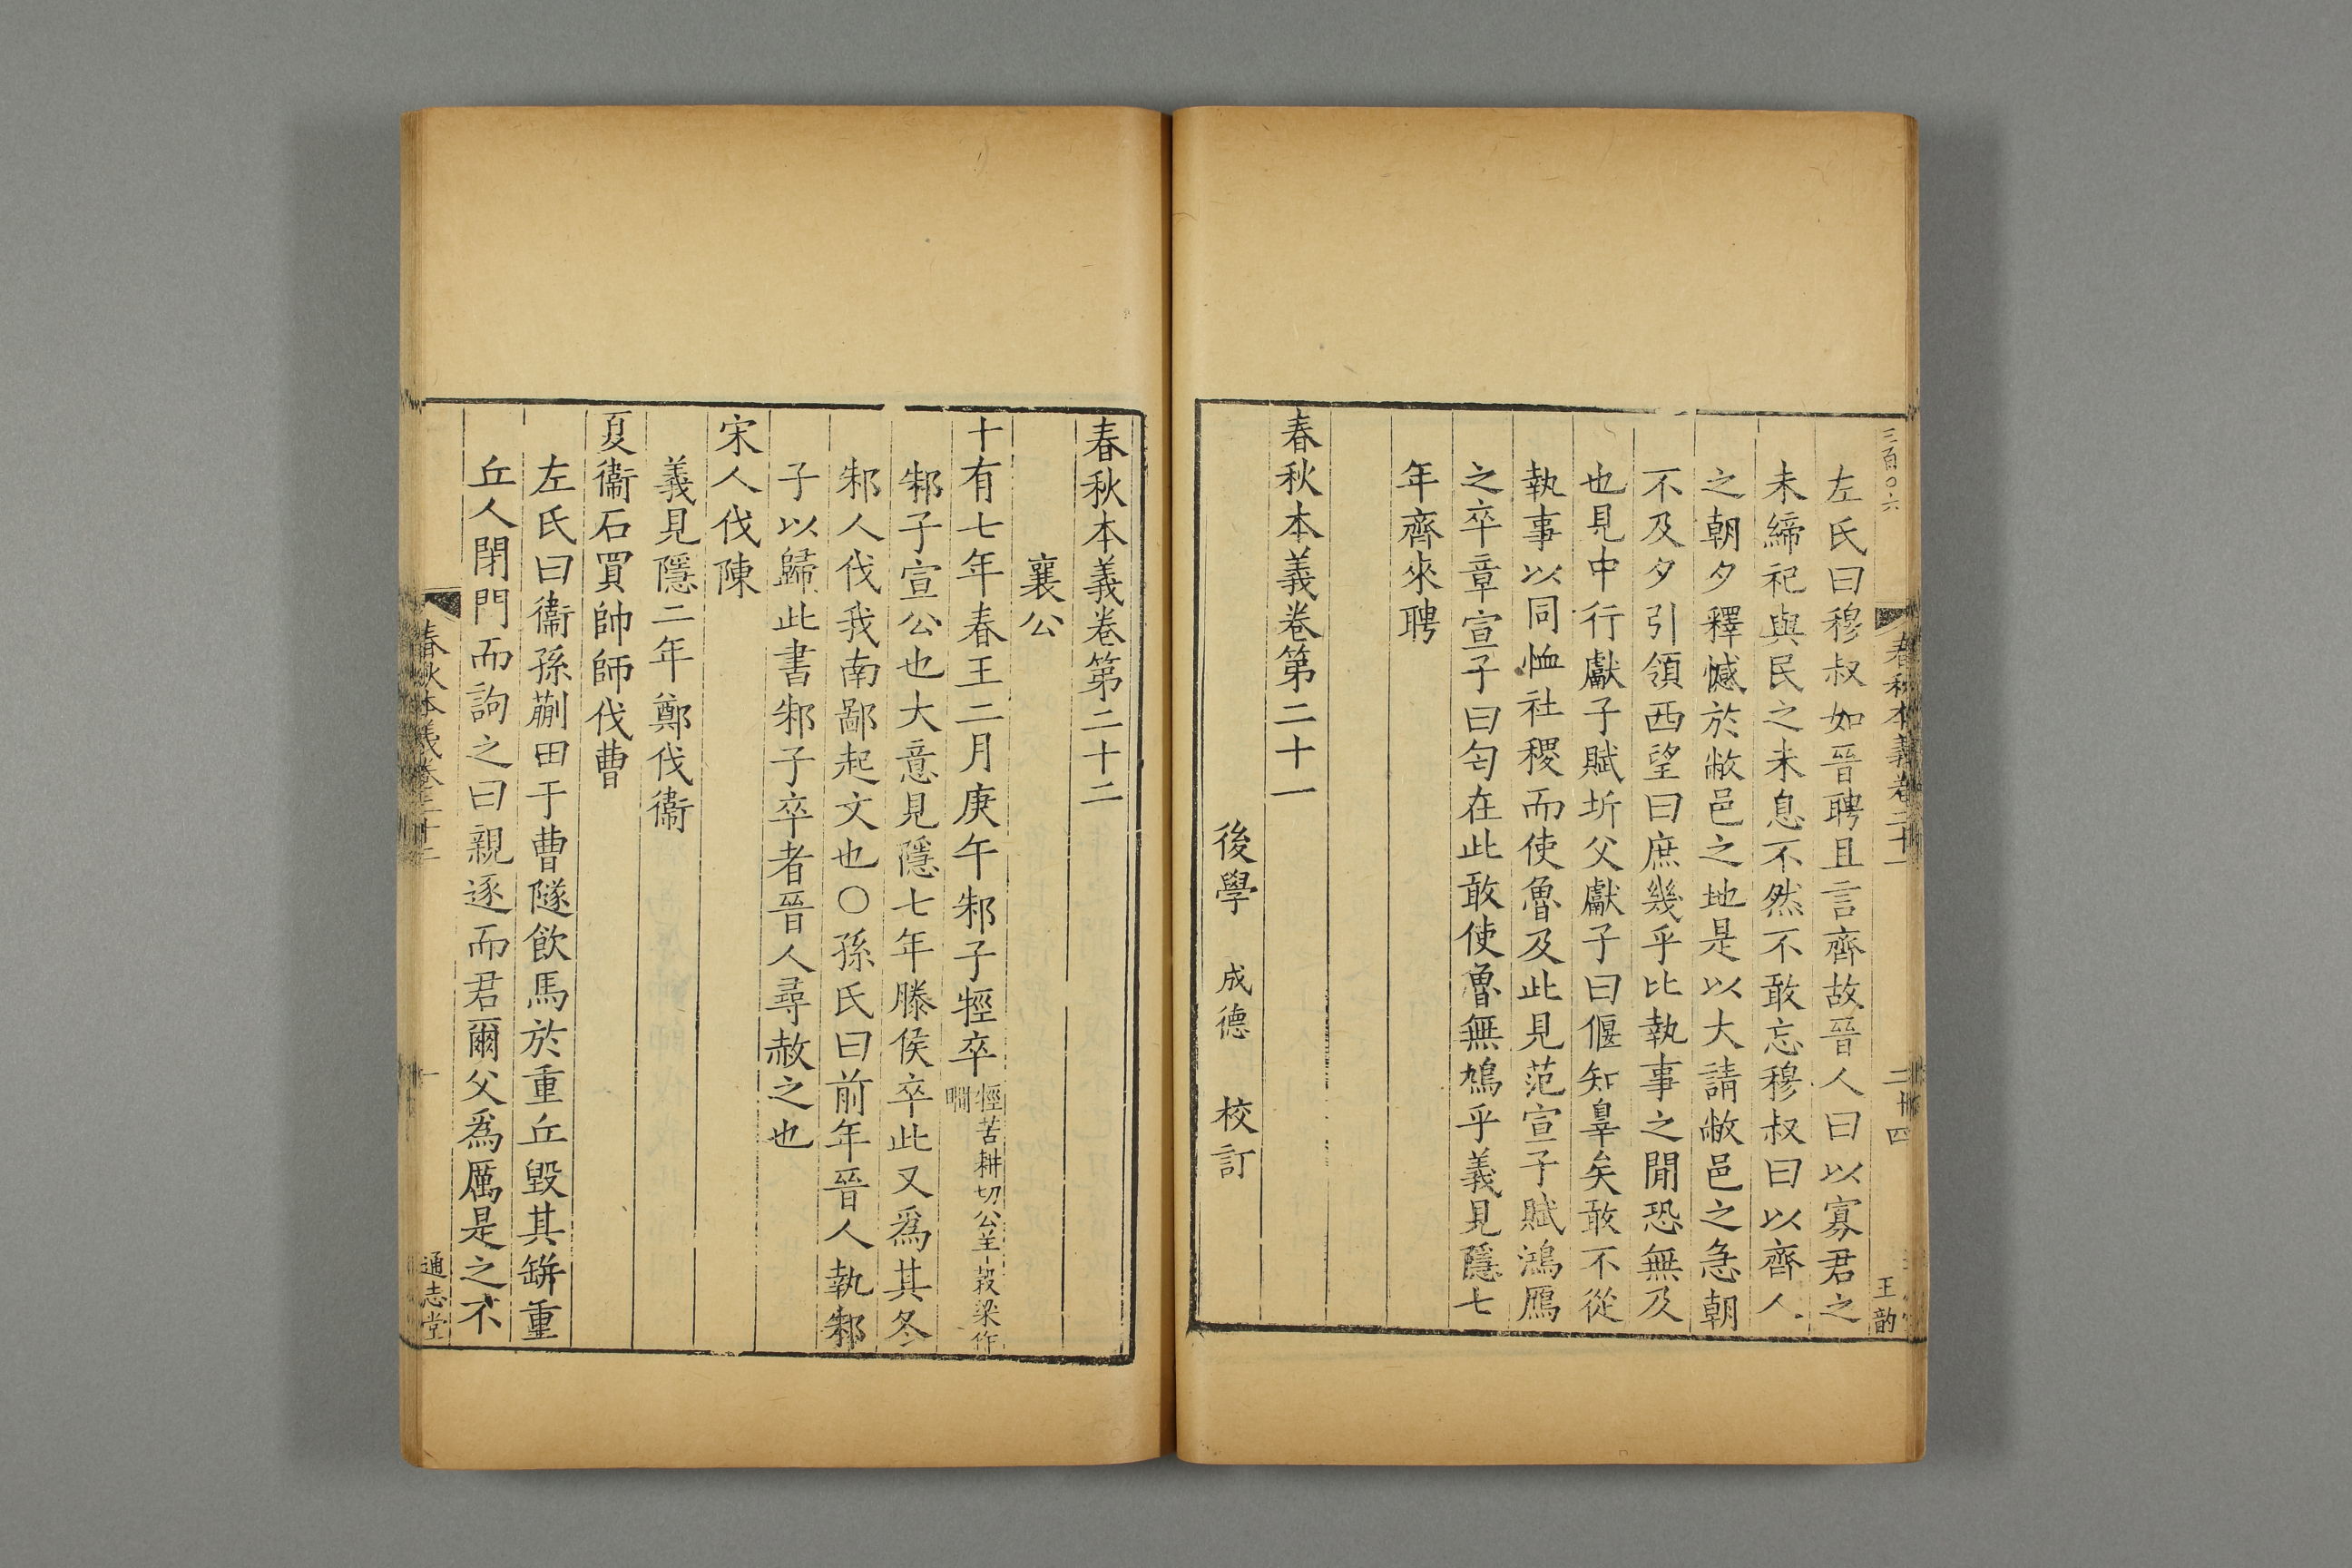 三百〇六
春秋本義卷二十一
二十四
王韵
左氏曰穆叔如晉聘且言齊故晉人曰以寡君之
未締祀與民之未息不然不敢忘穆叔曰以齊人
之朝夕釋憾於敝邑之地是以大請敝邑之急朝
不及夕引領西望曰庶幾乎比執事之閒恐無及
也見中行獻子賦圻父獻子曰偃知辠矣敢不從
執事以同恤社稷而使魯及此見范宣子賦鴻鴈
之卒章宣子曰匄在此敢使魯無鳩乎義見隱七
年齊來聘
春秋本義卷第二十一
後學 成德 校訂
春秋本義卷第二十二
襄公
十有七年春王二月庚午邾子牼卒牼苦耕切公羊榖梁作
瞷
邾子宣公也大意見隱七年滕侯卒此又爲其冬
邾人伐我南鄙起文也〇孫氏曰前年晉人執邾
子以歸此書邾子卒者晉人尋赦之也
宋人伐陳
義見隱二年鄭伐衞
夏衞石買帥師伐曹
左氏曰衞孫蒯田于曹隧飲馬於重丘毀其缾重
丘人閉門而訽之曰親逐而君爾父爲厲是之不
春秋本義卷二十二
一
通志堂